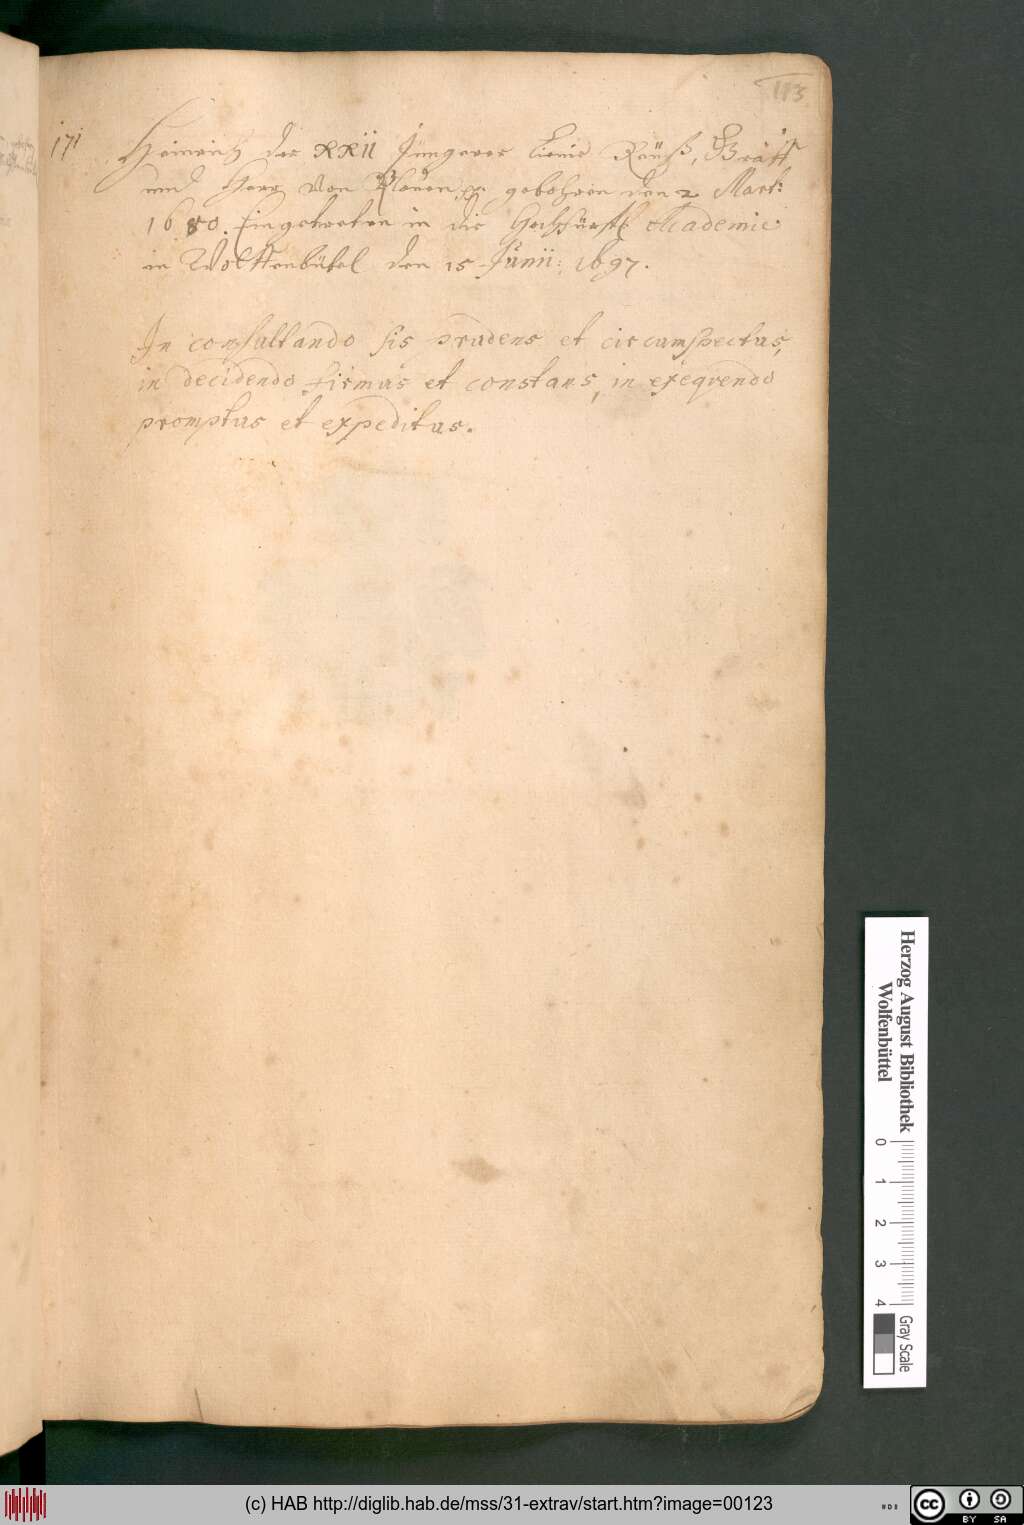 113
171
Heinrich der XXII Jüngerer Linie Reüß, Graff,
und Herr von Plauen, gebohren den 2 Mart:
1680. Eingetreten in die Hochfürstl. Academie
in Wolffenbütel den 15 Junii: 1697.
In consultando sis prudens et circumspectus,
in decidendo firmus et constans, in exequendo
promptus et expeditus.
Herzog August Bibliothek
Wolfenbüttel
0 1 2 3 4
Gray Scale
(c) HAB http://diglib.hab.de/mss/31-extrav/start.htm?image=00123
cc BY SA